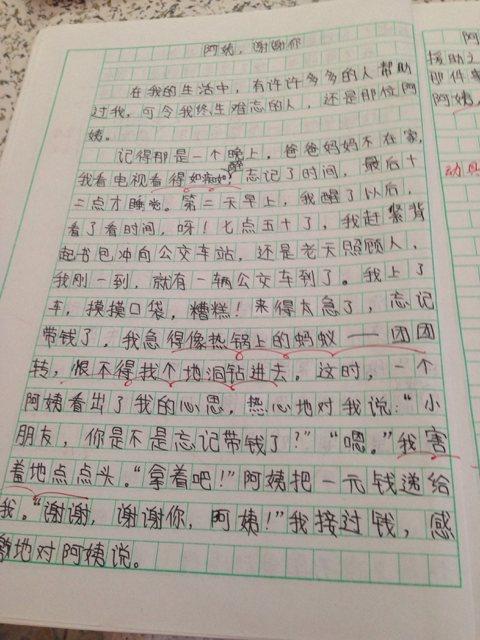 阿姨，谢谢你
在我的生活中，有许许多多的人帮助
过我，可令我终生难忘的人，还是那位阿
姨。
记得那是一个晚上，爸爸妈妈不在家，
我看电视看得如痴如醉，忘记了时间，最后十
二点才睡觉。第二天早上，我醒了以后，
看了看时间，呀！七点五十了，我赶紧背
起书包冲向公交车站，还是老天照顾人，
我刚一到，就有一辆公交车到了。我上了
车，摸摸口袋，糟糕！来得太急了，忘记
带钱了，我急得像热锅上的蚂蚁——团团
转，恨不得找个地洞钻进去。这时，一个
阿姨看出了我的心思，热心地对我说：“小
朋友，你是不是忘记带钱了？”“嗯。”我害
羞地点点头。“拿着吧！”阿姨把一元钱递给
我。“谢谢，谢谢你，阿姨！”我接过钱，感
激地对阿姨说。
阿
援助之
那件事
阿姨，